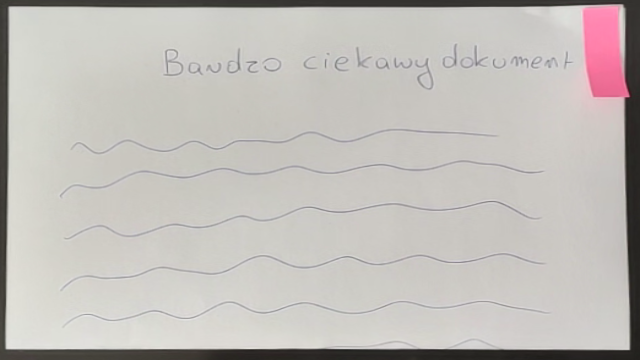 Bardzo ciekawy dokument